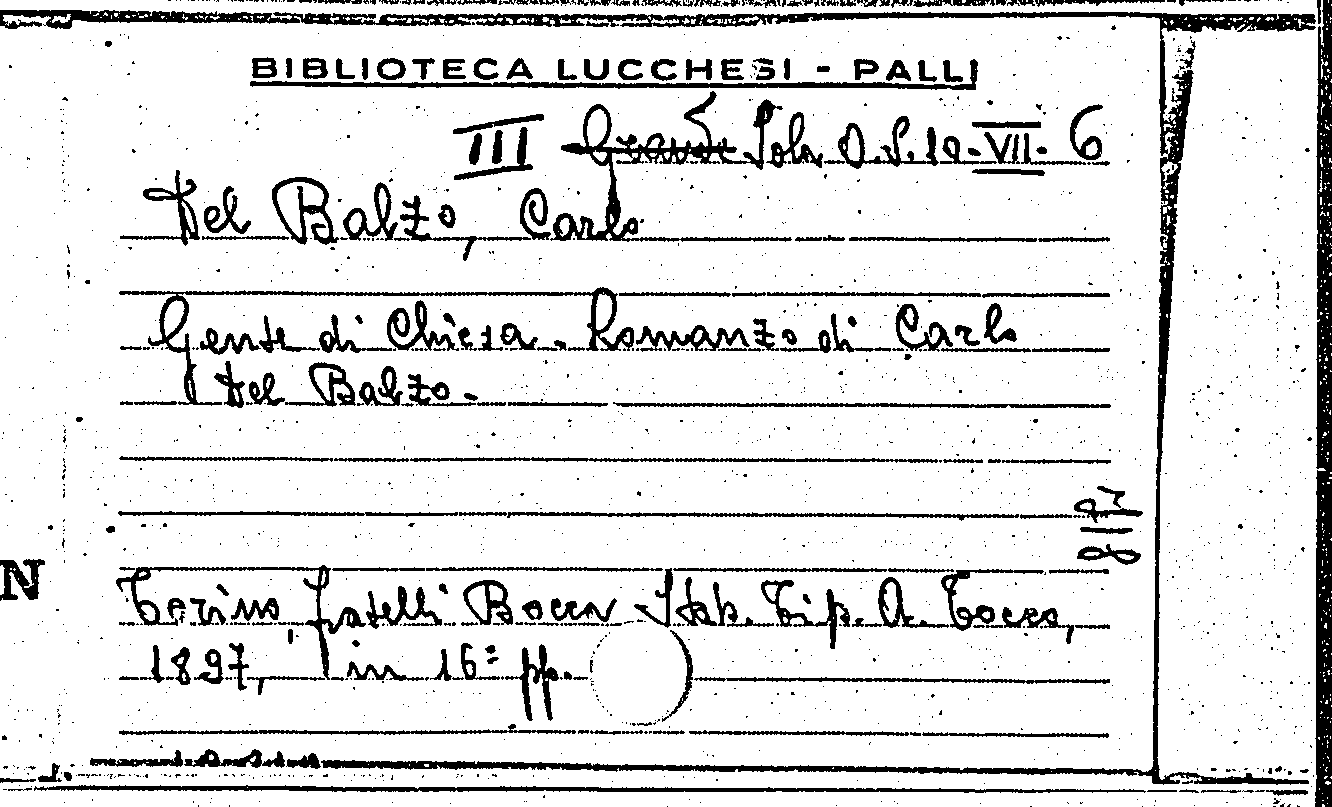 BIBLIOTECA LUCCHESI - PALLI
III Grande Sala O.S. 10-VII-6
Del Balzo, Carlo
Gente di Chiesa. Romanzo di Carlo
Del Balzo.-
Torino, Fratelli Bocca - Stab. Tip. A. Tocco,
1897, in 16° pp.
N